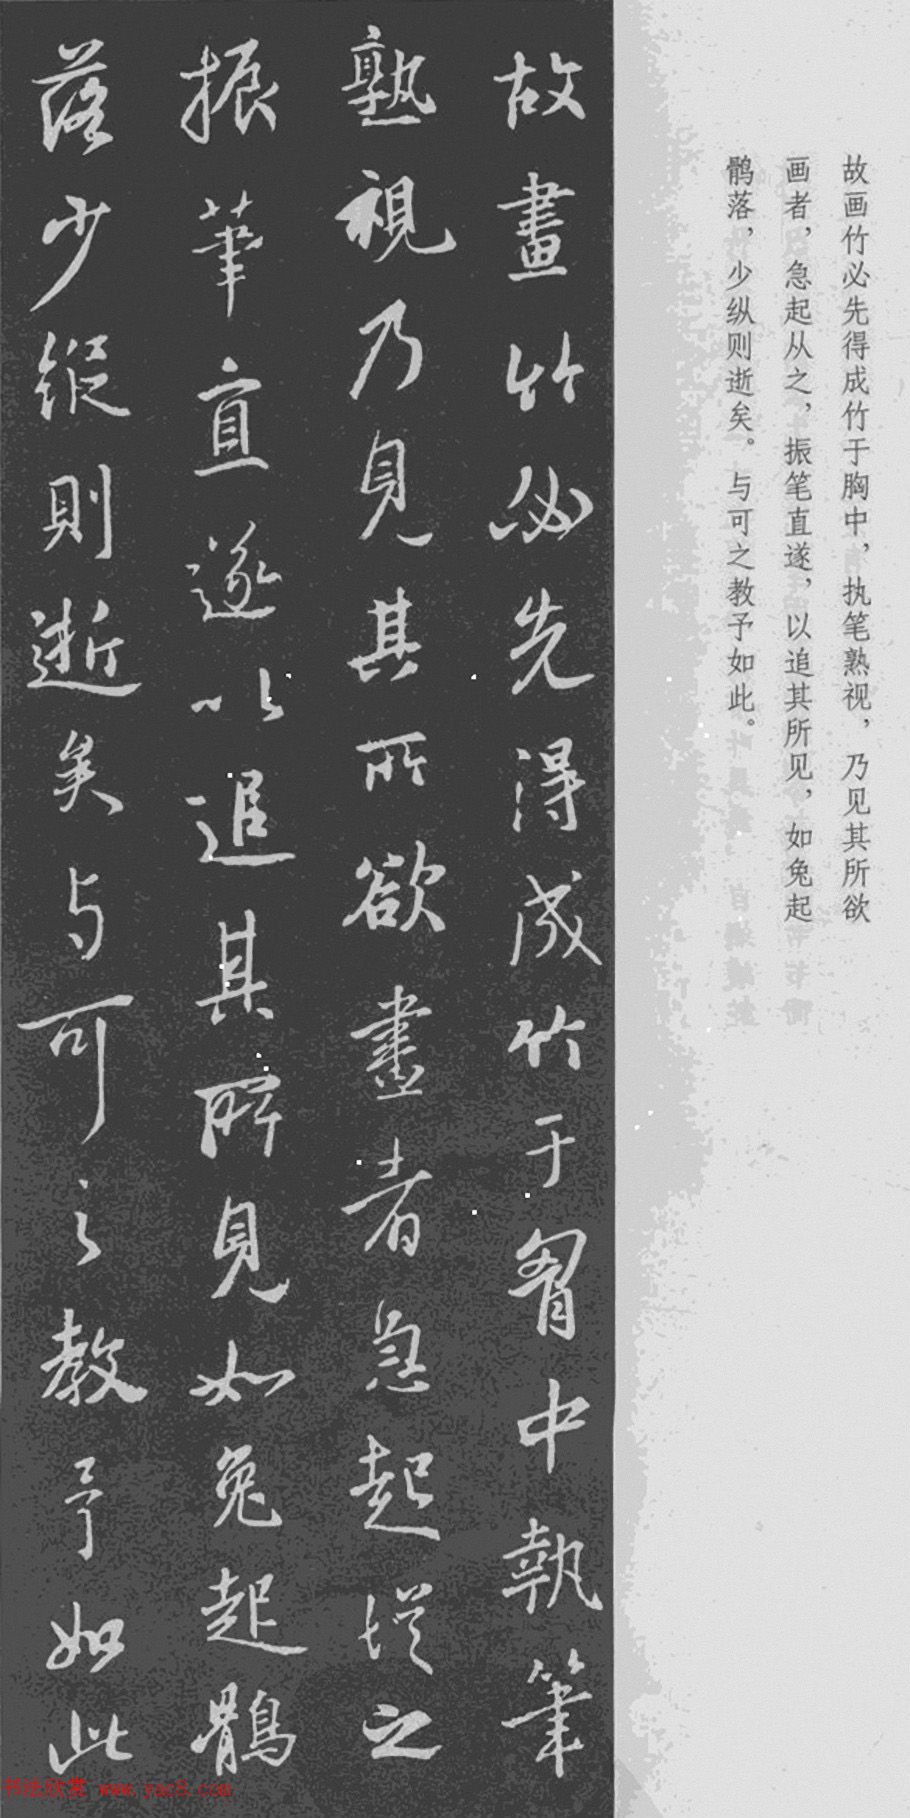 故画竹必先得成竹于胸中，执笔熟视，乃见其所欲
画者，急起从之，振笔直遂，以追其所见，如兔起
鹘落，少纵则逝矣。与可之教予如此。
故畫竹必先得成竹于胷中執筆
熟視乃見其所欲畫者急起從之
振筆直遂以追其所見如兔起鶻
落少縱則逝矣与可之教予如此
书法欣赏 www.yac8.com